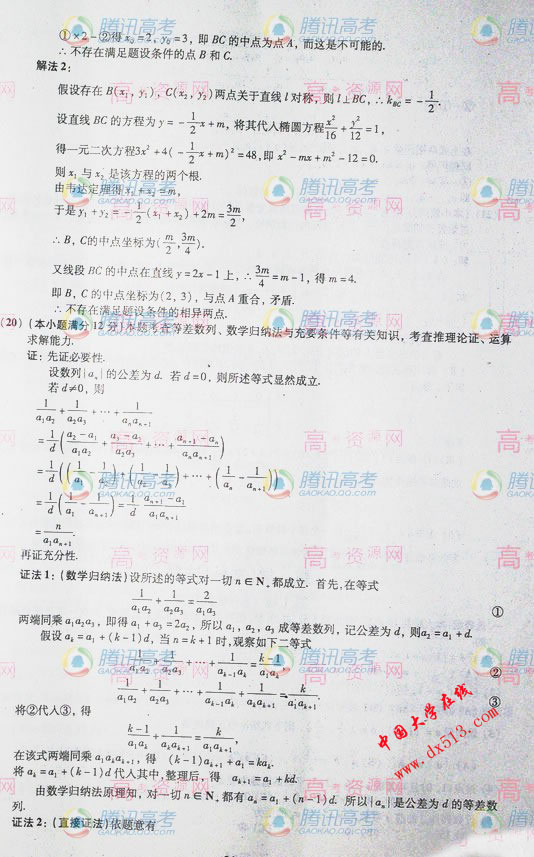 ①×2-②得x₀=2, y₀=3，即BC的中点为点A，而这是不可能的.
∴不存在满足题设条件的点B和C.
解法2：
假设存在B(x₁, y₁)，C(x₂, y₂)两点关于直线l对称，则l⊥BC，∴k_BC = -1/2.
设直线BC的方程为y = -1/2 x+m，将其代入椭圆方程x²/16+y²/12=1，
得一元二次方程3x²+4(-1/2 x+m)²=48，即x²-mx+m²-12=0.
则x₁与x₂是该方程的两个根.
由韦达定理得x₁+x₂=m，
于是y₁+y₂=-1/2(x₁+x₂)+2m=3m/2，
∴B，C的中点坐标为(m/2, 3m/4).
又线段BC的中点在直线y=2x-1上，∴3m/4=m-1，得m=4.
即B，C的中点坐标为(2, 3)，与点A重合，矛盾.
∴不存在满足题设条件的相异两点.
(20)(本小题满分12分)本题考查等差数列、数学归纳法与充要条件等有关知识，考查推理论证、运算
求解能力.
证：先证必要性.
设数列{aₙ}的公差为d. 若d=0，则所述等式显然成立.
若d≠0，则
1/(a₁a₂)+1/(a₂a₃)+…+1/(aₙaₙ₊₁)
=1/d((a₂-a₁)/(a₁a₂)+(a₃-a₂)/(a₂a₃)+…+(aₙ₊₁-aₙ)/(aₙaₙ₊₁))
=1/d((1/a₁-1/a₂)+(1/a₂-1/a₃)+…+(1/aₙ-1/aₙ₊₁))
=1/d(1/a₁-1/aₙ₊₁)=1/d·(aₙ₊₁-a₁)/(a₁aₙ₊₁)
=n/(a₁aₙ₊₁).
再证充分性.
证法1：(数学归纳法)设所述的等式对一切n∈N₊都成立. 首先，在等式
1/(a₁a₂)+1/(a₂a₃)=2/(a₁a₃) ①
两端同乘a₁a₂a₃，即得a₁+a₃=2a₂，所以a₁，a₂，a₃成等差数列，记公差为d，则a₂=a₁+d.
假设aₖ=a₁+(k-1)d，当n=k+1时，观察如下二等式
1/(a₁a₂)+1/(a₂a₃)+…+1/(aₖ₋₁aₖ)=(k-1)/(a₁aₖ)， ②
1/(a₁a₂)+1/(a₂a₃)+…+1/(aₖ₋₁aₖ)+1/(aₖaₖ₊₁)=k/(a₁aₖ₊₁). ③
将②代入③，得
(k-1)/(a₁aₖ)+1/(aₖaₖ₊₁)=k/(a₁aₖ₊₁)，
在该式两端同乘a₁aₖaₖ₊₁，得 (k-1)aₖ₊₁+a₁=kaₖ.
将aₖ=a₁+(k-1)d代入其中，整理后，得 aₖ₊₁=a₁+kd.
由数学归纳法原理知，对一切n∈N₊都有aₙ=a₁+(n-1)d. 所以{aₙ}是公差为d的等差数
列.
证法2：(直接证法)依题意有
腾讯高考
GAOKAO.QQ.COM
高考资源网
中国大学在线
www.dx513.com